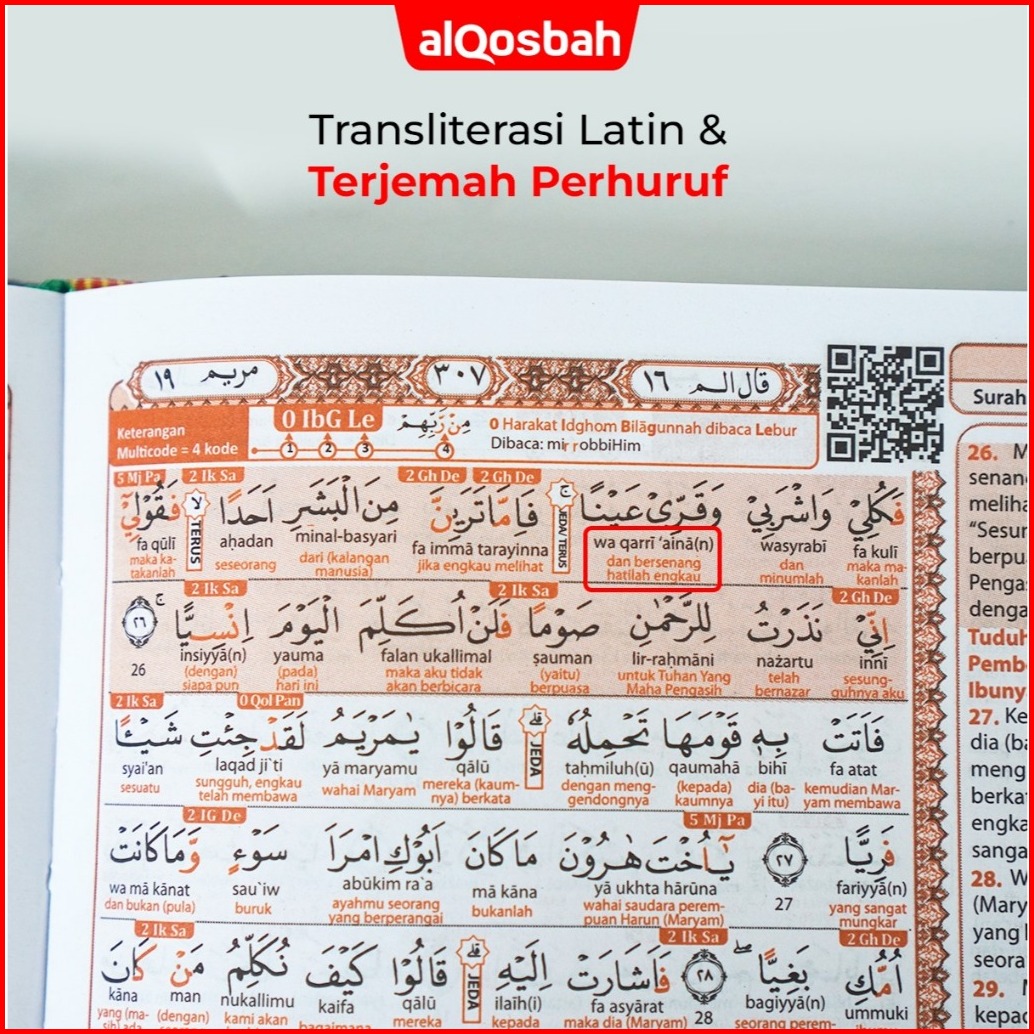 alQosbah
Transliterasi Latin &
Terjemah Perhuruf
مريم ١٩
٣٠٧
قال الم ١٦
Keterangan
Multicode = 4 kode
0 IbG Le
1 2 3 4
مِنْ رَّبِّهِمْ
0 Harakat Idghom Bilāgunnah dibaca Lebur
Dibaca: mir robbiHim
5 Mj Pa 2 Ik Sa 2 Gh De 2 Gh De
فَكُلِيْ وَاشْرَبِيْ وَقَرِّيْ عَيْنًا ۚ فَاِمَّا تَرَيِنَّ مِنَ الْبَشَرِ اَحَدًا ۙ فَقُوْلِيْٓ
JEDA/TERUS TERUS
fa kulī wasyrabī wa qarrī ‘ainā(n) fa immā tarayinna minal-basyari aḥadan fa qūlī
maka ma- dan dan bersenang jika engkau melihat dari (kalangan seseorang maka ka-
kanlah minumlah hatilah engkau manusia) takanlah
2 Ik Sa 2 Ik Sa 2 Gh De
اِنِّيْ نَذَرْتُ لِلرَّحْمٰنِ صَوْمًا فَلَنْ اُكَلِّمَ الْيَوْمَ اِنْسِيًّا ۚ ٢٦
innī nażartu lir-raḥmāni ṣauman falan ukallimal yauma insiyyā(n) 26
sesung- telah untuk Tuhan Yang (yaitu) maka aku tidak (pada) (dengan)
guhnya aku bernazar Maha Pengasih berpuasa akan berbicara hari ini siapa pun
2 Ik Sa 0 Qol Pan
فَاَتَتْ بِهٖ قَوْمَهَا تَحْمِلُهٗ ۗ قَالُوْا يٰمَرْيَمُ لَقَدْ جِئْتِ شَيْـًٔا
JEDA
fa atat bihī qaumahā taḥmiluh(ū) qālū yā maryamu laqad ji`ti syai'an
kemudian Mar- dia (ba- (kepada) dengan meng- mereka (kaum- wahai Maryam sungguh, engkau sesuatu
yam membawa yi itu) kaumnya gendongnya nya) berkata telah membawa
2 IG De 5 Mj Pa
فَرِيًّا ٢٧ يٰٓاُخْتَ هٰرُوْنَ مَا كَانَ اَبُوْكِ امْرَاَ سَوْءٍ وَّمَا كَانَتْ
fariyyā(n) 27 yā ukhta hārūna mā kāna abūkim ra`a sau`iw wa mā kānat
yang sangat wahai saudara perem- bukanlah ayahmu seorang buruk dan bukan (pula)
mungkar puan Harun (Maryam) yang berperangai
2 Ik Sa 2 Ik Sa 2 Gh De
اُمُّكِ بَغِيًّا ۖ ٢٨ فَاَشَارَتْ اِلَيْهِ ۗ قَالُوْا كَيْفَ نُكَلِّمُ مَنْ كَانَ
JEDA
ummuki bagiyyā(n) 28 fa asyārat ilaīh(i) qālū kaifa nukallimu man kāna
seorang perem- maka dia (Maryam) kepada mereka bagaimana kami akan (dengan) yang (ma-
Surah
26. M
senan
meliha
“Sesur
berpu
Penga
denga
Tuduh
Pemb
Ibuny
27. Ke
dia (ba
meng
berka
engka
sanga
28. W
(Mary
yang
seora
29. M
kepad